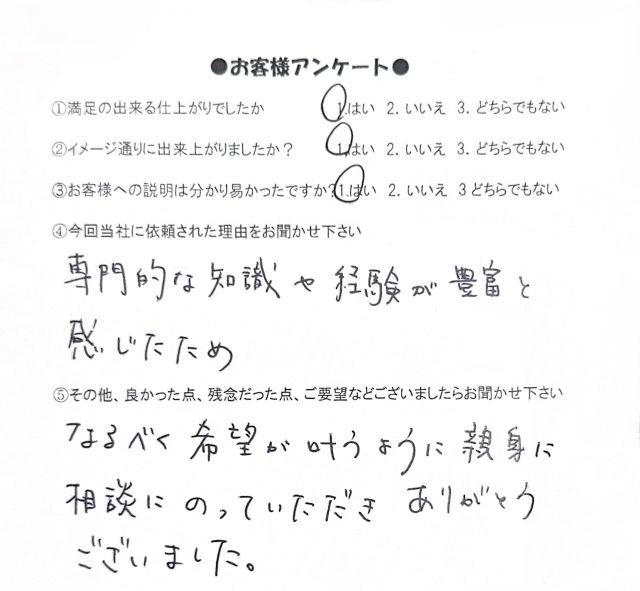 ●お客様アンケート●
①満足の出来る仕上がりでしたか 1.はい 2. いいえ 3. どちらでもない
②イメージ通りに出来上がりましたか？ 1.はい 2. いいえ 3. どちらでもない
③お客様への説明は分かり易かったですか? 1.はい 2. いいえ 3 どちらでもない
④今回当社に依頼された理由をお聞かせ下さい
専門的な知識や経験が豊富と
感じたため
⑤その他、良かった点、残念だった点、ご要望などございましたらお聞かせ下さい
なるべく希望が叶うように親身に
相談にのっていただき ありがとう
ございました。